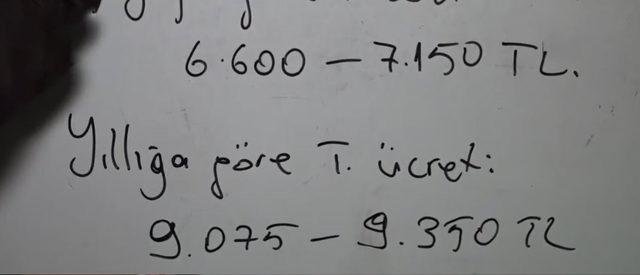 6.600 – 7.150 TL.
Yıllığa göre T. ücret:
9.075 – 9.350 TL